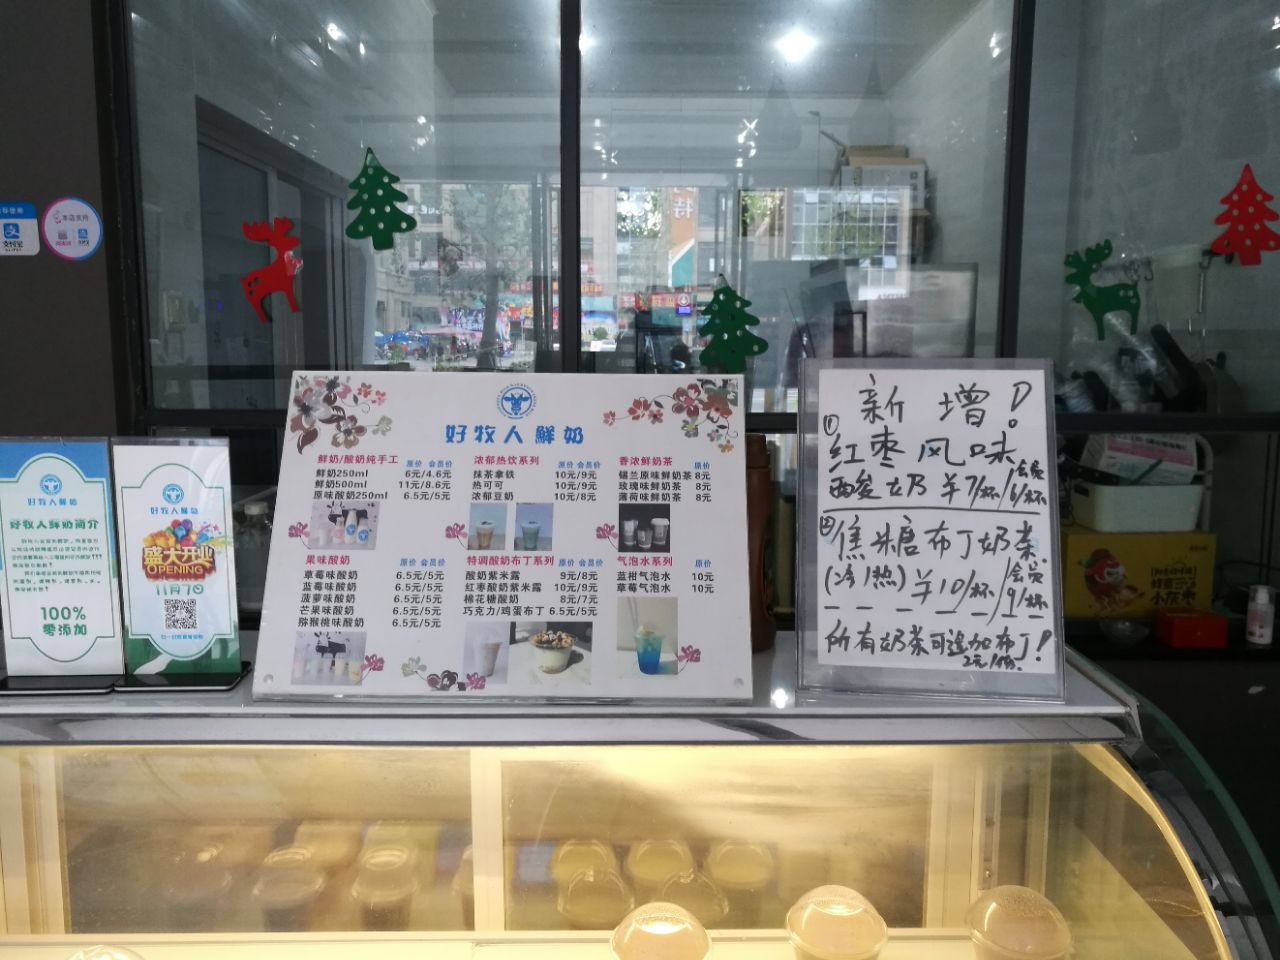 支付宝
本店支持
好牧人鲜奶
好牧人鲜奶简介
100%
零添加
好牧人鲜奶
盛大开业
OPENING
11月7日
好牧人鲜奶
鲜奶/酸奶纯手工 原价 会员价
鲜奶250ml 6元/4.6元
鲜奶500ml 11元/8.6元
原味酸奶250ml 6.5元/5元
浓郁热饮系列 原价 会员价
抹茶拿铁 10元/9元
热可可 10元/9元
浓郁豆奶 10元/8元
香浓鲜奶茶 原价
锡兰原味鲜奶茶 8元
玫瑰味鲜奶茶 8元
薄荷味鲜奶茶 8元
果味酸奶 原价 会员价
草莓味酸奶 6.5元/5元
蓝莓味酸奶 6.5元/5元
菠萝味酸奶 6.5元/5元
芒果味酸奶 6.5元/5元
猕猴桃味酸奶 6.5元/5元
特调酸奶布丁系列 原价 会员价
酸奶紫米露 9元/8元
红枣酸奶紫米露 10元/9元
棉花糖酸奶 8元/7元
巧克力/鸡蛋布丁 6.5元/5元
气泡水系列 原价
蓝柑气泡水 10元
草莓气泡水 10元
新增!
① 红枣风味
酸奶 ¥7/杯/会员6/杯
② 焦糖布丁奶茶
(冷/热) ¥10/杯/会员9/杯
所有奶茶可追加布丁!
2元/份
小灰枣